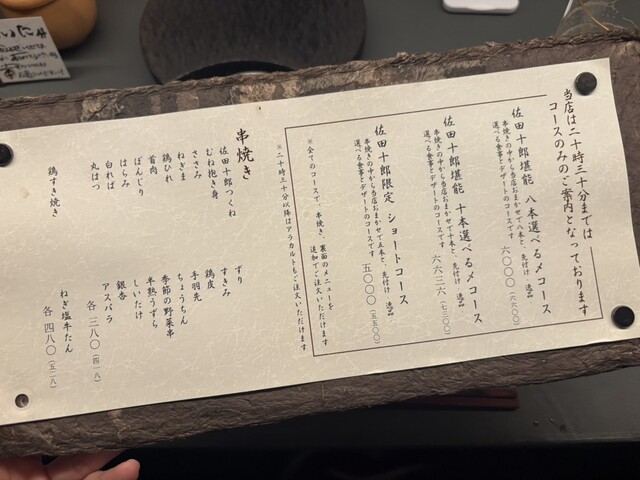 当店は二十時三十分までは
コースのみのご案内となっております
佐田十郎堪能 八本選べる〆コース
串焼きの中から当店おまかせで八本と、先付け 逸品
選べる食事とデザートのコースです 六〇〇〇(六六〇〇)
佐田十郎堪能 十本選べる〆コース
串焼きの中から当店おまかせで十本と、先付け 逸品
選べる食事とデザートのコースです 六六三六(七三〇〇)
佐田十郎限定 ショートコース
串焼きの中から当店おまかせで五本と、先付け 逸品
選べる食事とデザートのコースです 五〇〇〇(五五〇〇)
※全てのコースで、串焼き、裏面のメニューを
追加でご注文いただけます
※二十時三十分以降はアラカルトもご注文いただけます
串焼き
佐田十郎つくね
むね抱き身
ささみ
ねぎま
鶏ひれ
首肉
ぼんじり
はらみ
白ればー
丸はつ
ずり
すきみ
鶏皮
手羽先
ちょうちん
季節の野菜串
半熟うずら
しいたけ
銀杏
アスパラ
各 三八〇(四一八)
鶏すき焼き
ねぎ塩牛たん
各 四八〇(五二八)